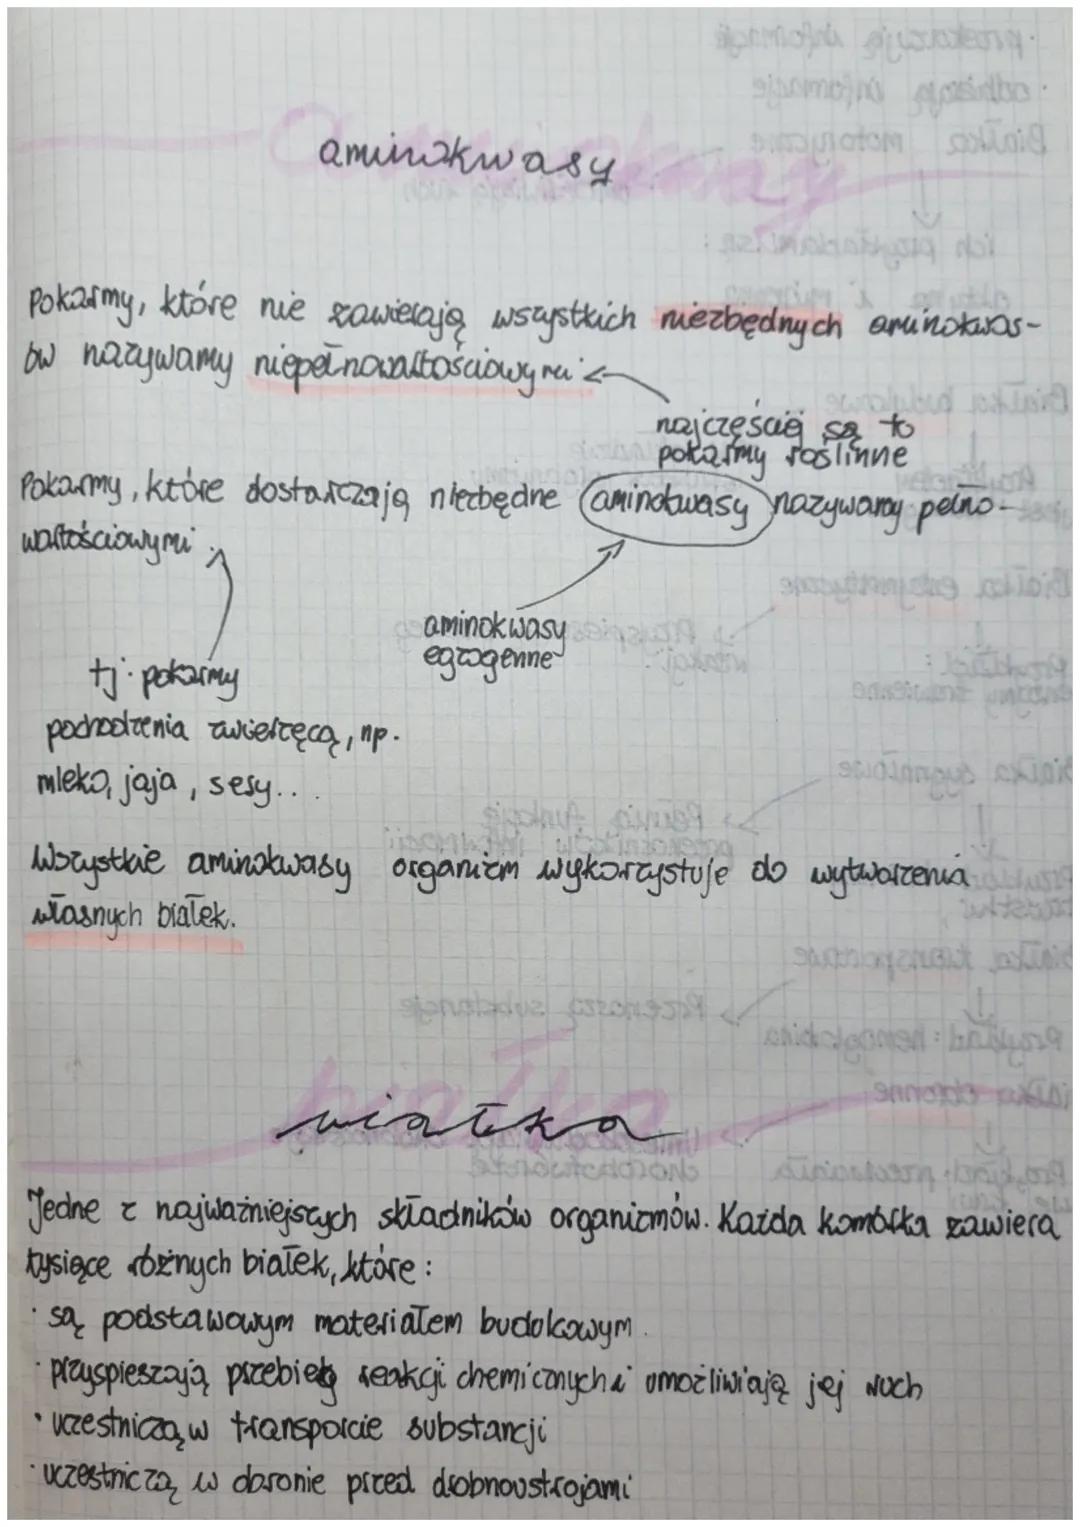 aminokwasy
Pokarmy, które nie zawierają wszystkich niezbędnych aminokwas-
ów nazywamy niepełnowartościowymi
najczęściej są to
pokarmy roślinne
Pokarmy, które dostarczają niezbędne aminokwasy nazywamy pełno-
wartościowymi
aminokwasy
egzogenne
tj. pokarmy
pochodzenia zwierzęcą, np.
mleko, jaja, sesy...
Wszystkie aminokwasy organizm wykorzystuje do wytworzenia
własnych białek.
białka
Jedne z najważniejszych składników organizmów. Każda komórka zawiera
tysiące różnych białek, które:
· są podstawowym materiałem budolcowym.
· przyspieszają przebieg reakcji chemicznych i umożliwiają jej ruch
· uczestniczą w transporcie substancji
· uczestniczą w obronie przed drobnoustrojami